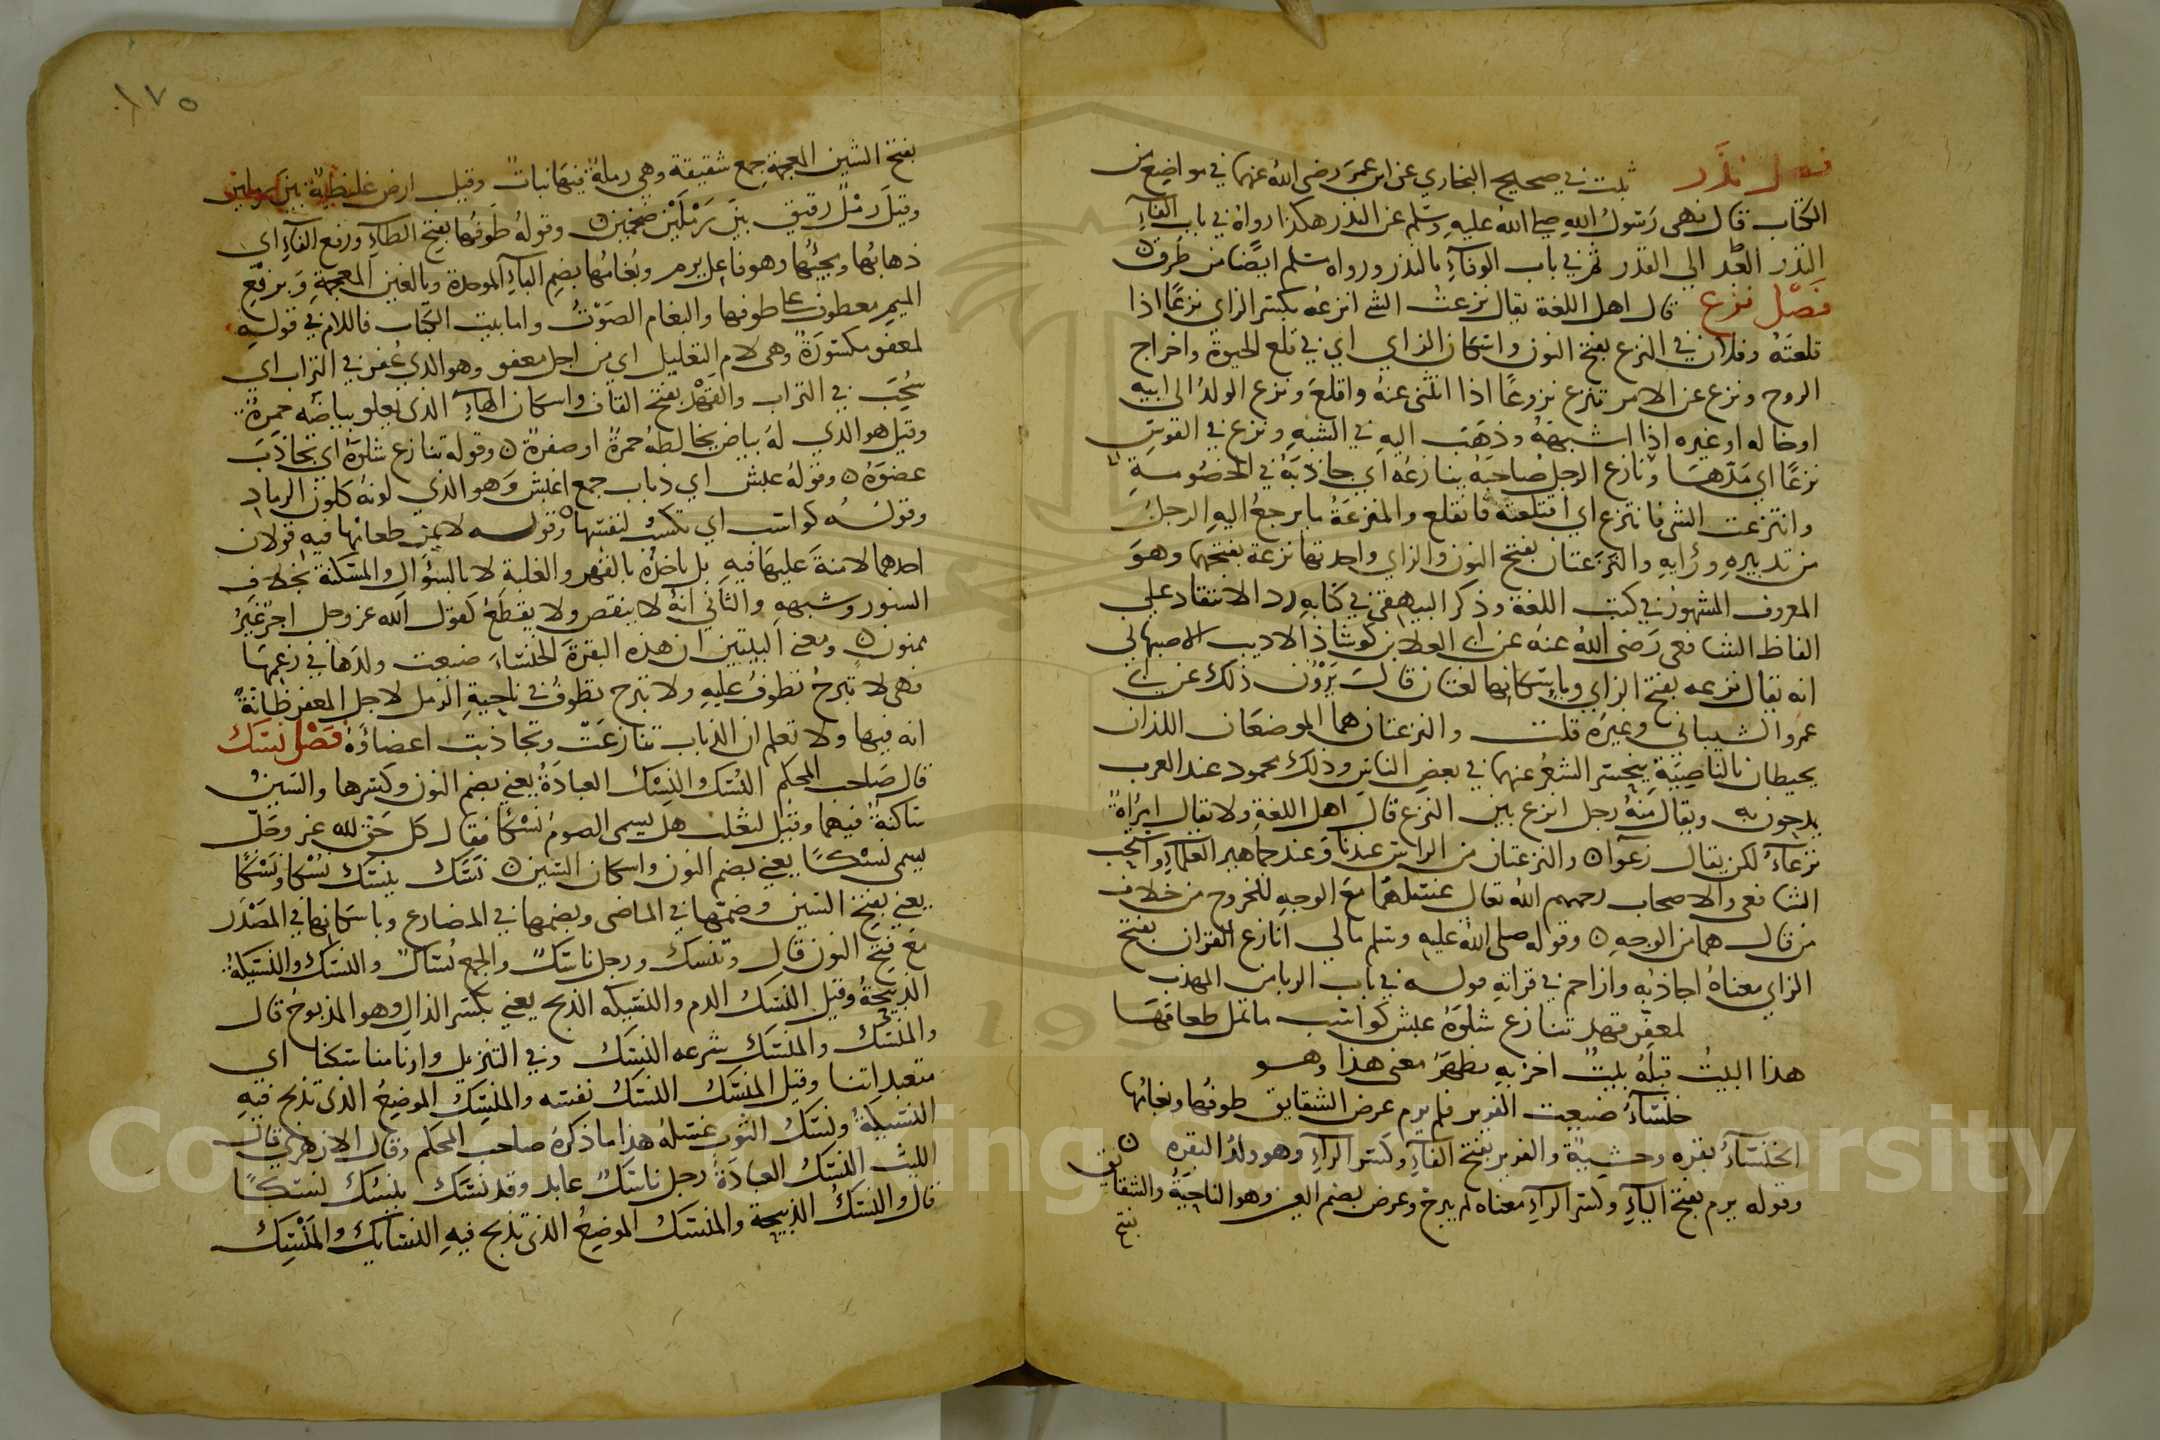 فصل نذر ثبت في صحيح البخاري عن ابن عمر رضي الله عنهما في مواضع من
الكتاب قال نهى رسول الله صلى الله عليه وسلم عن النذر هكذا رواه في باب القاء
النذر العبد الى القدر ثم في باب الوفاء بالنذر ورواه مسلم ايضا من طرق
فصل نزع قال اهل اللغة يقال نزعت الشي انزعه بكسر الزاي نزعا اذا
قلعته وفلان في النزع بفتح النون واسكان الزاي اي في قلع الحيوة واخراج
الروح ونزع عن الامر تنزع نزوعا اذا انثنى عنه واقلع ونزع الولد الى ابيه
او خاله او غيره اذا اشبهه وذهب اليه في الشبه ونزع في القوس
نزعا اي مدها ونازع الرجل صاحبه ينازعه اي جاذبه في الخصومة
وانتزعت الشي فانتزع اي اقتلعته فانقلع والمنزعة ما يرجع اليه الرجل
من تدبيره ورأيه والنزعتان بفتح النون والزاي واحدتها نزعة بفتحهما وهو
المعروف المشهور في كتب اللغة وذكر البيهقي في كتابه رد الانتقاد علي
الفاظ الشافعي رضي الله عنه عن ابي العلا بن كوشاذ الاديب الاصبهاني
انه يقال نزعه بفتح الزاي وباسكانها لغتان قال يروون ذلك عن ابي
عمرو الشيباني وغيره قلت والنزعتان هما الموضعان اللذان
يحيطان بالناصية ينحسر الشعر عنهما في بعض الناس وذلك محمود عند العرب
يمدحون به ويقال منه رجل انزع بين النزع قال اهل اللغة ولا يقال امرأة
نزعاء لكن يقال زعراء والنزعتان من الراس عندنا وعند جماهير العلماء واستحب
الشافعي والاصحاب رحمهم الله تعالى غسلهما مع الوجه للخروج من خلاف
من قال هما من الوجه وقوله صلى الله عليه وسلم مالي انازع القران بفتح
الزاي معناه اجاذبه وازاحم في قراته قوله في باب الربا من المهذب
لمعفر قهد تنازع شلوه غبش كواسب ما تمل طعامها
هذا البيت قبله بيت اخر به يظهر معنى هذا وهو
خنساء ضيعت الفرير فلم يرم عرض الشقايق طوفها وبغامها
الخنساء بقره وحشية والفرير بفتح الفاء وكسر الراء وهو ولد البقره
وقوله يرم بفتح الياء وكسر الراء معناه لم يبرح وعرض بضم العين وهو الناحية والشقايق
بفتح
١٧٥
بفتح الشين المعجمة جمع شقيقة وهي رملة فيها نبات وقيل ارض غليظة بين رملين
وقيل رمل رقيق بين رملين ضخمين وقوله طوفها بفتح الطاء ورفع الفاء اي
ذهابها ومجيئها وهو فاعل يرم وبغامها بضم الباء الموحدة وبالغين المعجمة وبرفع
الميم معطوف على طوفها والبغام الصوت واما بيت الكتاب فاللام في قوله
لمعفر مكسورة وهي لام التعليل اي من اجل معفر وهو الذي عفر في التراب اي
سحب في التراب والقهد بفتح القاف واسكان الهاء الذي يعلو بياضه حمرة
وقيل هو الذي له بياض يخالطه حمرة او صفرة وقوله تنازع شلوه اي تجاذب
عضوه وقوله غبش اي ذياب جمع اغبش وهو الذي لونه كلون الرماد
وقوله كواسب اي تكسب لنفسها وقوله لا يمن طعامها فيه قولان
احدهما لا منة عليها فيه بل ياخذه بالقهر والغلبة لا بالسؤال والمسكنة بخلاف
السنور وشبهه والثاني انه لا ينقص ولا يقطع كقول الله عز وجل اجر غير
ممنون ومعنى البيتين ان هذه البقرة الخنساء ضيعت ولدها في زعمها
فهي لا تبرح تطوف عليه ولا تبرح تطوف في ناحية الرمل لاجل المعفر ظانة
انه فيها ولا تعلم ان الذياب تنازعت وتجاذبت اعضاؤه فصل نسك
قال صاحب المحكم النسك والنسك العبادة يعني بضم النون وكسرها والسين
ساكنة فيهما وقيل لثعلب هل يسمى الصوم نسكا فقال كل حق لله عز وجل
يسمى نسكا يعني بضم النون واسكان السين نسك ينسك نسكا ونسكا
يعني بفتح السين وضمها في الماضي وبضمها في المضارع وباسكانها في المصدر
مع فتح النون قال وتنسك ورجل ناسك والجمع نساك والنسك والنسيكة
الذبيحة وقيل النسك الدم والنسيكه الذبح يعني بكسر الذال وهو المذبوح قال
والمنسك والمنسك شرعه النسك وفي التنزيل وارنا مناسكنا اي
متعبداتنا وقيل المنسك النسك نفسه والمنسك الموضع الذي تذبح فيه
النسيكة ونسك الثوب غسله هذا ما ذكره صاحب المحكم وقال الازهري قال
الليث النسك العبادة رجل ناسك عابد وقد نسك ينسك نسكا
قال والنسك الذبيحة والمنسك الموضع الذي تذبح فيه النسايك والمنسك
Copyright © King Saud University